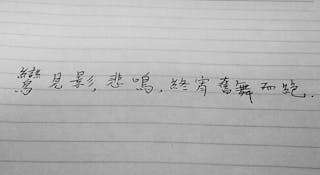 鸞見影,悲鳴,終宵奮舞而絕.